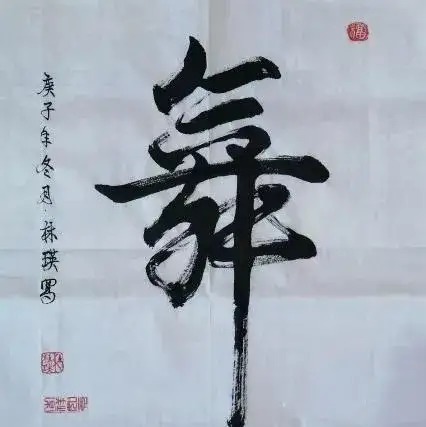 舞
庚子年冬月林瑛写